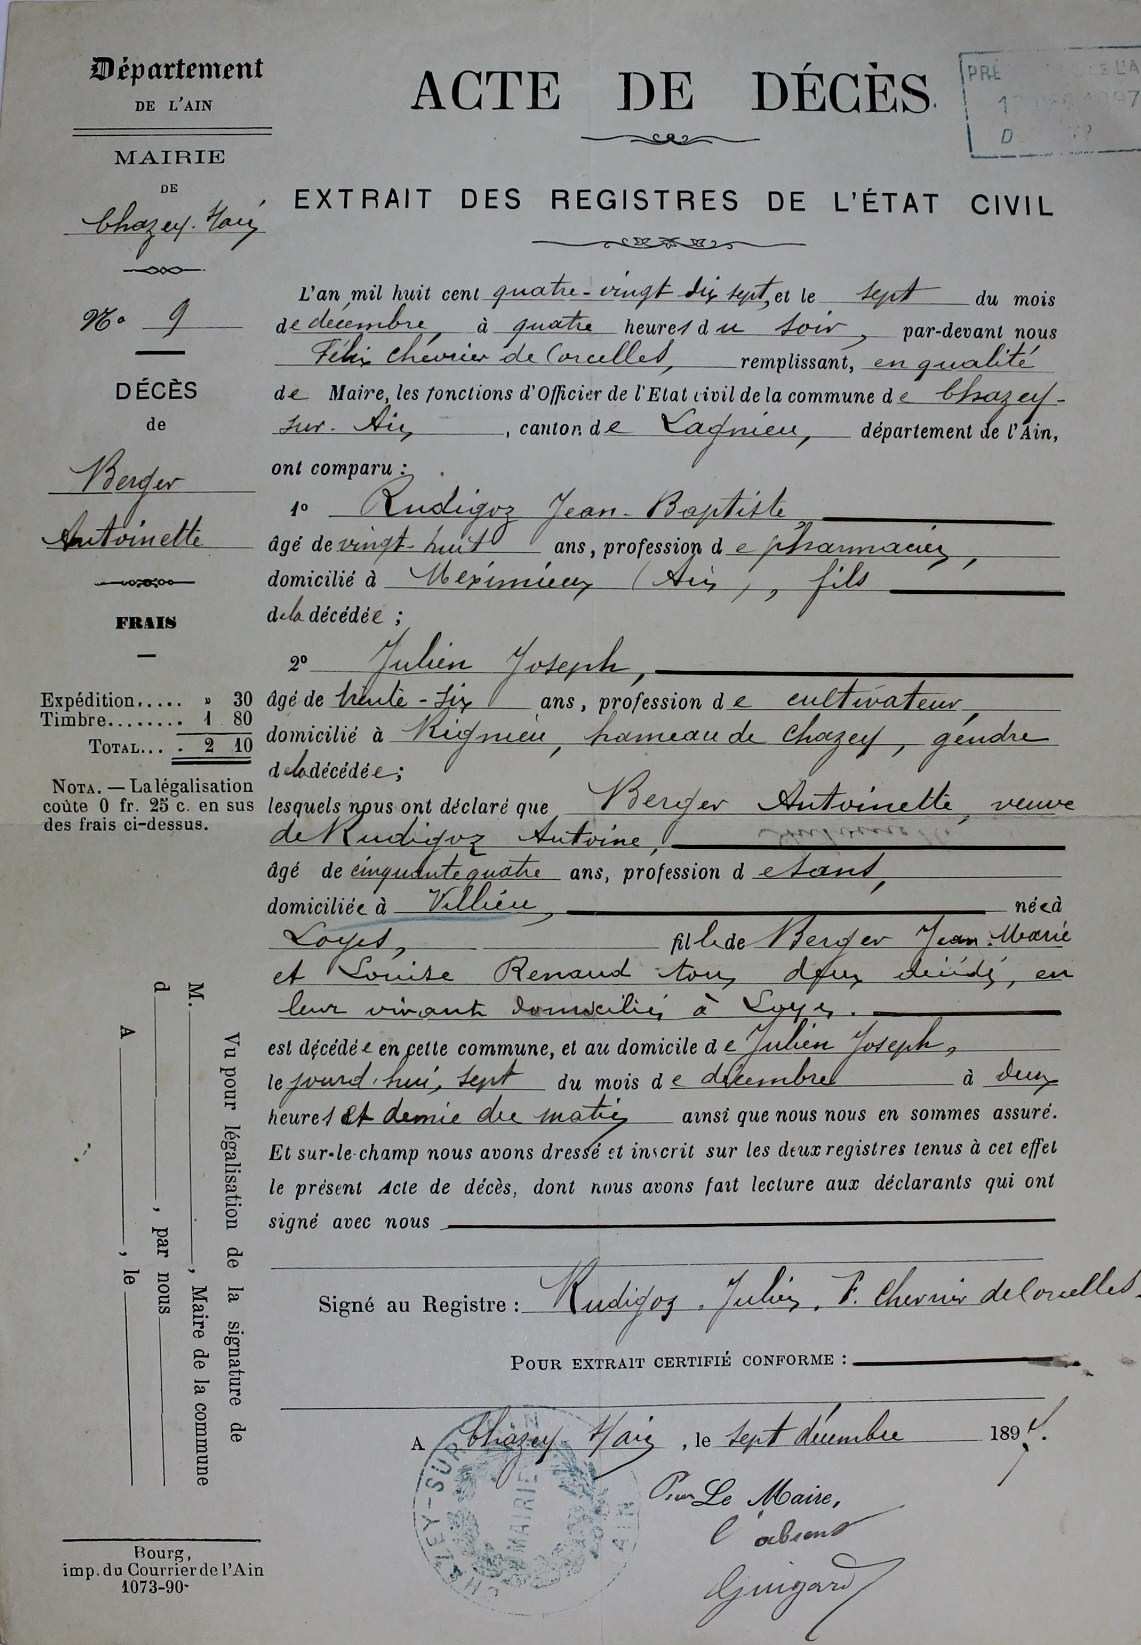 Département
DE L'AIN
MAIRIE
DE
Chazey-s/ain
No 9
DÉCÈS
de
Berger
Antoinette
FRAIS
Expédition..... » 30
Timbre........ 1 80
TOTAL... . 2 10
NOTA. — La légalisation
coûte 0 fr. 25 c. en sus
des frais ci-dessus.
Vu pour légalisation de la signature de
M. , Maire de la commune
d , par nous
A , le
Bourg,
imp. du Courrier de l'Ain
1073-90-
ACTE DE DÉCÈS.
EXTRAIT DES REGISTRES DE L'ÉTAT CIVIL
L'an mil huit cent quatre-vingt dix sept, et le sept du mois
de décembre, à quatre heures du soir, par-devant nous
Félix Chevrier de Corcelles, remplissant, en qualité
de Maire, les fonctions d'Officier de l'Etat civil de la commune de Chazey-
sur-Ain, canton de Lagnieu, département de l'Ain,
ont comparu :
1o Rudigoz Jean-Baptiste,
âgé de vingt-huit ans, profession de pharmacien,
domicilié à Meximieux (Ain), fils
de la décédée ;
2o Julien Joseph,
âgé de trente-six ans, profession de cultivateur,
domicilié à Rignieu, hameau de Chazey, gendre
de la décédée ;
lesquels nous ont déclaré que Berger Antoinette, veuve
de Rudigoz Antoine,
âgé de cinquante quatre ans, profession de sans,
domiciliée à Villieu, née à
Loyes, fille de Berger Jean-Marie
et Louise Renaud tous deux décédés, en
leur vivant domiciliés à Loyes.
est décédée en cette commune, et au domicile de Julien Joseph,
le jourd'hui, sept du mois de décembre à deux
heures et demie du matin ainsi que nous nous en sommes assuré.
Et sur-le-champ nous avons dressé et inscrit sur les deux registres tenus à cet effet
le présent Acte de décès, dont nous avons fait lecture aux déclarants qui ont
signé avec nous
Signé au Registre : Rudigoz. Julien. F. Chevrier de Corcelles.
POUR EXTRAIT CERTIFIÉ CONFORME :
A Chazey s/ain, le sept décembre 1897.
Pour Le Maire,
l'absent
Guigard
CHAZEY-SUR-AIN
MAIRIE
AIN